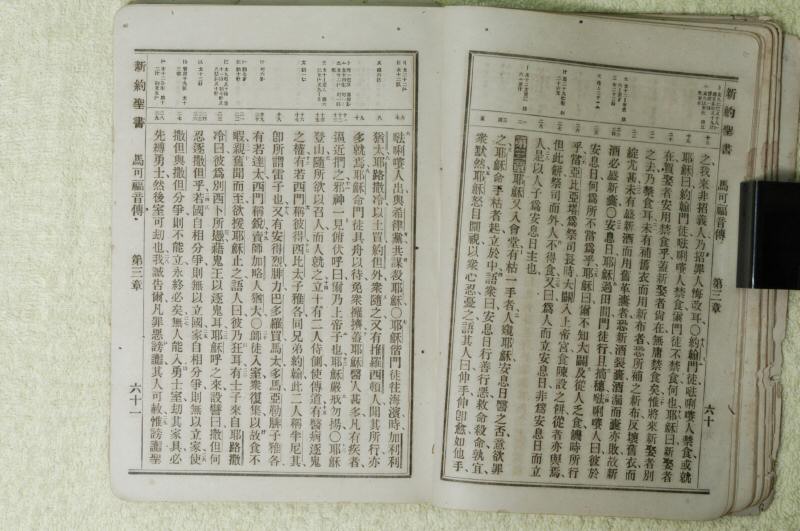 新約聖書 馬可福音傳 第三章 六十
之我來非招義人乃招罪人悔改耳〇約翰門徒𠵽唎㘔人禁食或就
耶穌曰約翰門徒𠵽唎㘔人禁食爾門徒不禁食何也耶穌曰新娶者
在賀娶者安用禁食乎蓋新娶者尚在無庸禁食矣惟將來新娶者別
之去乃禁食耳未有補舊衣而用新布者恐所補之新布反壞舊衣而
綻尤甚未有盛新酒而用舊革囊者恐新酒裂囊酒漏而囊亦敗故新
酒必盛新囊〇安息日耶穌過田間門徒行且摘穗𠵽唎㘔人曰彼於
安息日何爲所不當爲乎耶穌曰爾不知大闢及從人乏食饑時所行
乎當亞比亞塔爲祭司長時大闢入上帝宮食陳設之餅從者亦與焉
但此餅祭司而外人不得食又曰爲人而立安息日非爲安息日而立
人是以人子爲安息日主也
第三章耶穌又入會堂有枯一手者人窺耶穌安息日醫之否意欲罪
之耶穌命手枯者起立於中語衆曰安息日行善行惡救命殺命孰宜
衆默然耶穌怒目周視以衆心忍憂之語其人曰伸手伸卽愈如他手
𠵽唎㘔人出與希律黨共謀殺耶穌〇耶穌偕門徒往海濱時加利利
猶太耶路撒冷以土買約但外衆隨之又有推羅西頓人聞其所行亦
多就焉耶穌命門徒具舟以待免衆擁擠蓋耶穌醫人甚多凡有疾者
逼近捫之邪神一見俯伏呼曰爾乃上帝子也耶穌嚴戒勿揚〇耶穌
登山隨所欲以召人而人就之立十有二人侍側使傳道有醫病逐鬼
之權有若西門稱彼得西比太子雅各同兄弟約翰此二人稱半尼其
卽所謂雷子也又有安得烈腓力巴多羅買馬太多馬亞勒腓子雅各
有若達太西門稱銳賣師加略人猶大〇師徒入室衆復集以故食不
暇親舊聞而至欲援耶穌止之語人曰彼乃狂耳有士子來自耶路撒
冷曰彼爲別西卜所憑藉鬼王以逐鬼耳耶穌呼之來設譬曰撒但何
忍逐撒但乎若國自相分爭則無以立國家自相分爭則無以立家使
撒但與撒但分爭則不能立永終必矣無人能入勇士室刼其家具必
先縛勇士然後室可刼也我誠告爾凡罪惡謗讟其人可赦惟謗讟聖
新約聖書 馬可福音傳 第三章 六十一